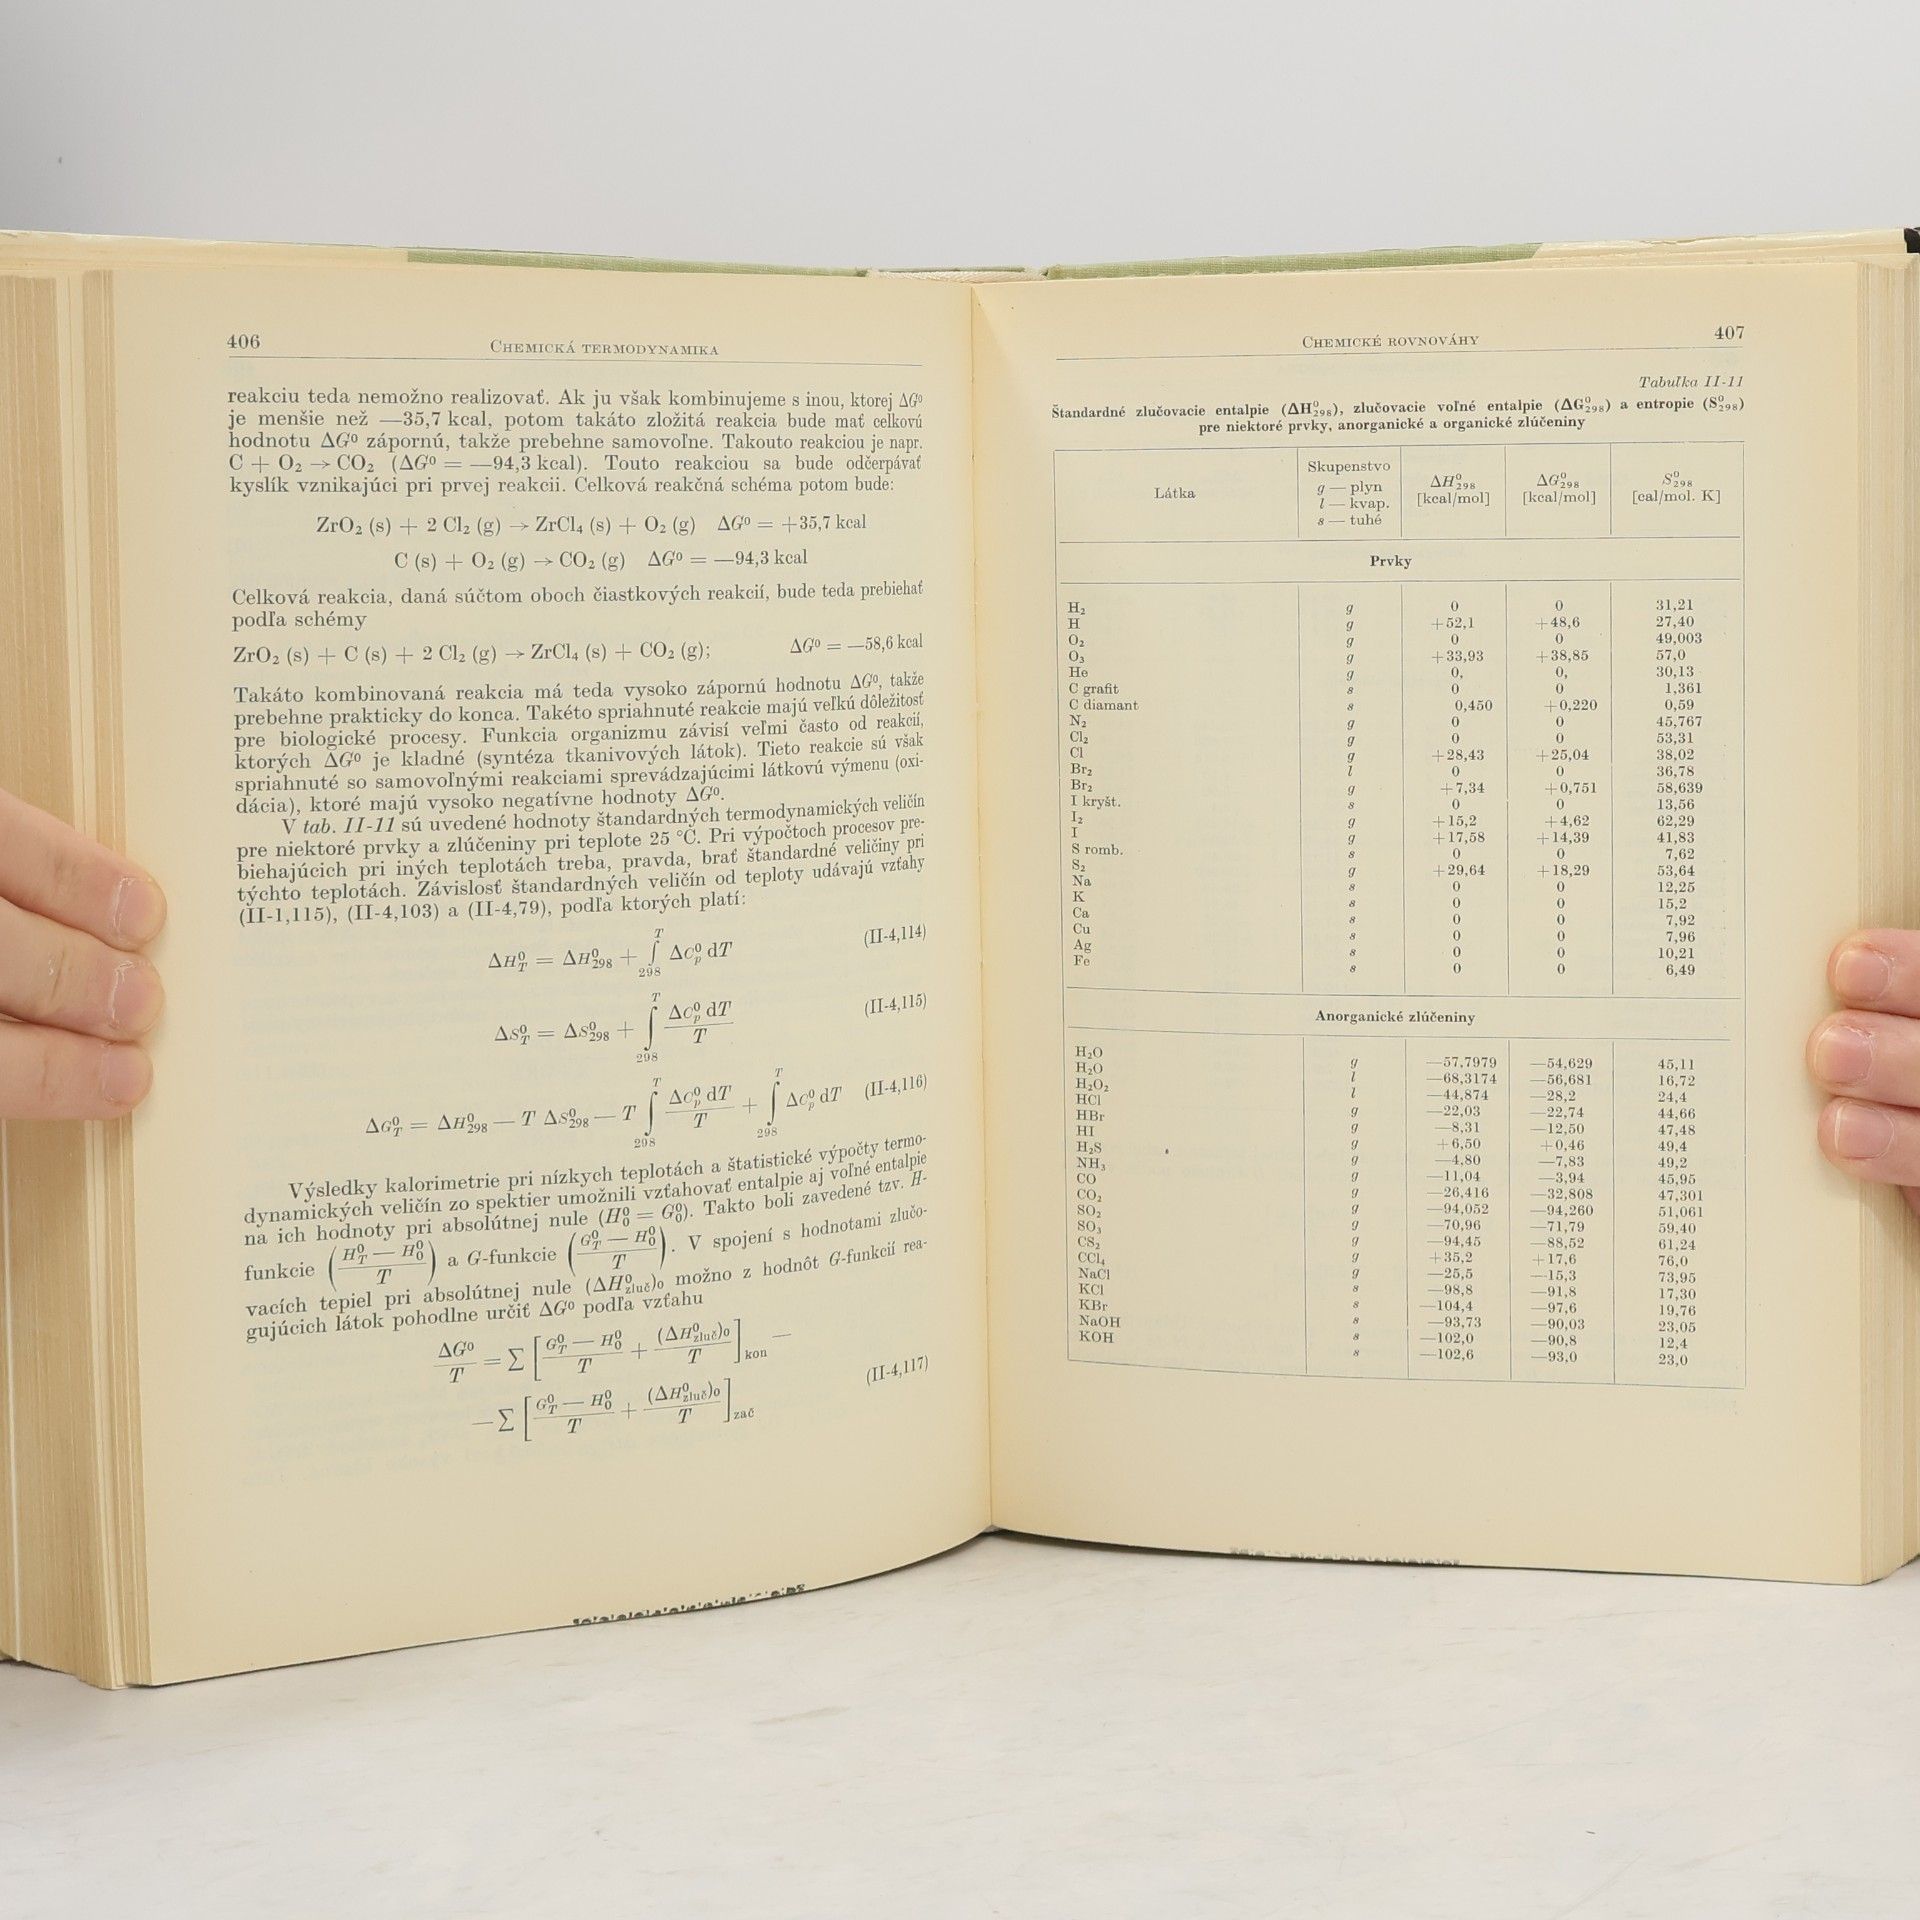 406
CHEMICKÁ TERMODYNAMIKA
reakciu teda nemožno realizovať. Ak ju však kombinujeme s inou, ktorej ΔG⁰
je menšie než —35,7 kcal, potom takáto zložitá reakcia bude mať celkovú
hodnotu ΔG⁰ zápornú, takže prebehne samovoľne. Takouto reakciou je napr.
C + O₂ → CO₂ (ΔG⁰ = —94,3 kcal). Touto reakciou sa bude odčerpávať
kyslík vznikajúci pri prvej reakcii. Celková reakčná schéma potom bude:
ZrO₂ (s) + 2 Cl₂ (g) → ZrCl₄ (s) + O₂ (g) ΔG⁰ = +35,7 kcal
C (s) + O₂ (g) → CO₂ (g) ΔG⁰ = —94,3 kcal
Celková reakcia, daná súčtom oboch čiastkových reakcií, bude teda prebiehať
podľa schémy
ZrO₂ (s) + C (s) + 2 Cl₂ (g) → ZrCl₄ (s) + CO₂ (g); ΔG⁰ = —58,6 kcal
Takáto kombinovaná reakcia má teda vysoko zápornú hodnotu ΔG⁰, takže
prebehne prakticky do konca. Takéto spriahnuté reakcie majú veľkú dôležitosť
pre biologické procesy. Funkcia organizmu závisí veľmi často od reakcií,
ktorých ΔG⁰ je kladné (syntéza tkanivových látok). Tieto reakcie sú však
spriahnuté so samovoľnými reakciami sprevádzajúcimi látkovú výmenu (oxi-
dácia), ktoré majú vysoko negatívne hodnoty ΔG⁰.
V tab. II-11 sú uvedené hodnoty štandardných termodynamických veličín
pre niektoré prvky a zlúčeniny pri teplote 25 °C. Pri výpočtoch procesov pre-
biehajúcich pri iných teplotách treba, pravda, brať štandardné veličiny pri
týchto teplotách. Závislosť štandardných veličín od teploty udávajú vzťahy
(II-1,115), (II-4,103) a (II-4,79), podľa ktorých platí:
ΔH⁰_T = ΔH⁰₂₉₈ + ∫₂₉₈^T ΔC⁰_p dT (II-4,114)
ΔS⁰_T = ΔS⁰₂₉₈ + ∫₂₉₈^T ΔC⁰_p dT / T (II-4,115)
ΔG⁰_T = ΔH⁰₂₉₈ — T ΔS⁰₂₉₈ — T ∫₂₉₈^T ΔC⁰_p dT / T + ∫₂₉₈^T ΔC⁰_p dT (II-4,116)
Výsledky kalorimetrie pri nízkych teplotách a štatistické výpočty termo-
dynamických veličín zo spektier umožnili vzťahovať entalpie aj voľné entalpie
na ich hodnoty pri absolútnej nule (H⁰₀ = G⁰₀). Takto boli zavedené tzv. H-
funkcie (H⁰_T — H⁰₀ / T) a G-funkcie (G⁰_T — H⁰₀ / T). V spojení s hodnotami zlučo-
vacích tepiel pri absolútnej nule (ΔH⁰_zluč)₀ možno z hodnôt G-funkcií rea-
gujúcich látok pohodlne určiť ΔG⁰ podľa vzťahu
ΔG⁰ / T = Σ [G⁰_T — H⁰₀ / T + (ΔH⁰_zluč)₀ / T]_kon —
— Σ [G⁰_T — H⁰₀ / T + (ΔH⁰_zluč)₀ / T]_zač (II-4,117)
CHEMICKÉ ROVNOVÁHY
407
Tabuľka II-11
Štandardné zlučovacie entalpie (ΔH⁰₂₉₈), zlučovacie voľné entalpie (ΔG⁰₂₉₈) a entropie (S⁰₂₉₈)
pre niektoré prvky, anorganické a organické zlúčeniny
Látka | Skupenstvo g — plyn l — kvap. s — tuhé | ΔH⁰₂₉₈ [kcal/mol] | ΔG⁰₂₉₈ [kcal/mol] | S⁰₂₉₈ [cal/mol. K]
Prvky
H₂ g 0 0 31,21
H g +52,1 +48,6 27,40
O₂ g 0 0 49,003
O₃ g +33,93 +38,85 57,0
He g 0, 0, 30,13
C grafit s 0 0 1,361
C diamant s 0,450 +0,220 0,59
N₂ g 0 0 45,767
Cl₂ g 0 0 53,31
Cl g +28,43 +25,04 38,02
Br₂ l 0 0 36,78
Br₂ g +7,34 +0,751 58,639
I kryšt. s 0 0 13,56
I₂ g +15,2 +4,62 62,29
I g +17,58 +14,39 41,83
S romb. s 0 0 7,62
S₂ g +29,64 +18,29 53,64
Na s 0 0 12,25
K s 0 0 15,2
Ca s 0 0 7,92
Cu s 0 0 7,96
Ag s 0 0 10,21
Fe s 0 0 6,49
Anorganické zlúčeniny
H₂O g —57,7979 —54,629 45,11
H₂O l —68,3174 —56,681 16,72
H₂O₂ l —44,874 —28,2 24,4
HCl g —22,03 —22,74 44,66
HBr g —8,31 —12,50 47,48
HI g +6,50 +0,46 49,4
H₂S g —4,80 —7,83 49,2
NH₃ g —11,04 —3,94 45,95
CO g —26,416 —32,808 47,301
CO₂ g —94,052 —94,260 51,061
SO₂ g —70,96 —71,79 59,40
SO₃ g —94,45 —88,52 61,24
CS₂ g +35,2 +17,6 76,0
CCl₄ g —25,5 —15,3 73,95
NaCl s —98,8 —91,8 17,30
KCl s —104,4 —97,6 19,76
KBr s —93,73 —90,03 23,05
NaOH s —102,0 —90,8 12,4
KOH s —102,6 —93,0 23,0